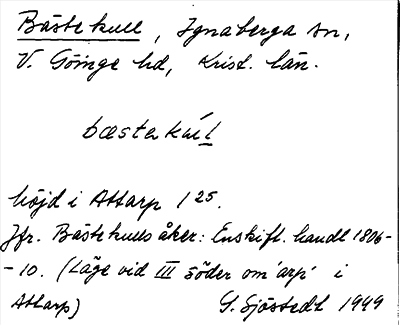 Bästekull, Ignaberga sn,
V. Göinge hd, Krist. län.
bæstekúl̲
höjd i Attarp 1²⁵.
Jfr. Bästekullsåker: Enskift. handl 1806-
-10. (Läge vid III söder om 'arp' i
Attarp) G. Sjöstedt 1949